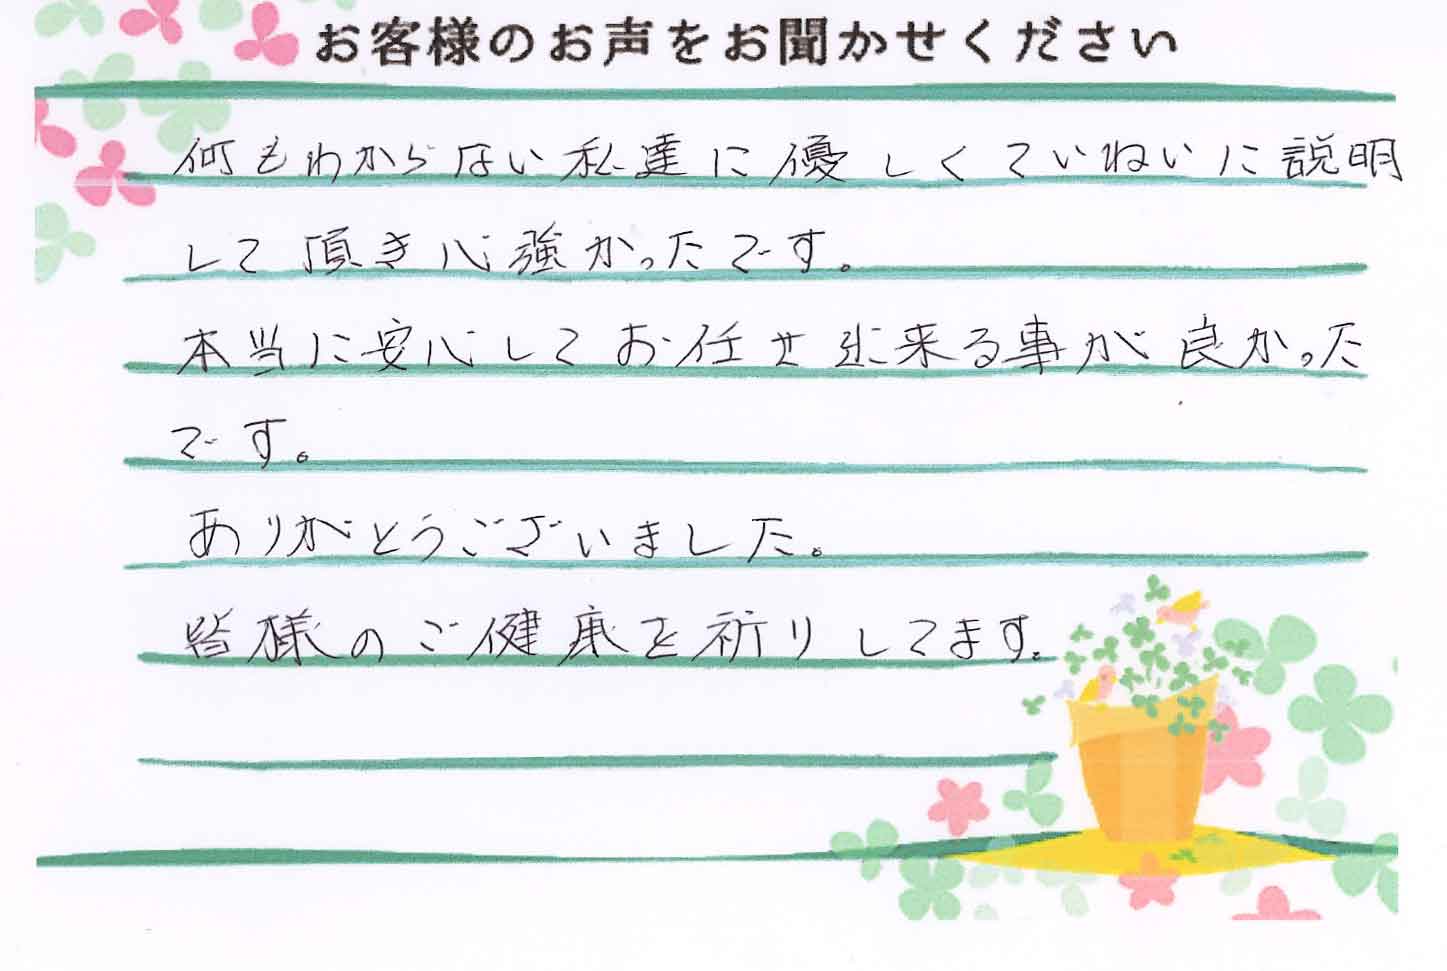 お客様のお声をお聞かせください
何もわからない私達に優しくていねいに説明
して頂き心強かったです。
本当に安心してお任せ出来る事が良かった
です。
ありがとうございました。
皆様のご健康を祈りしてます。